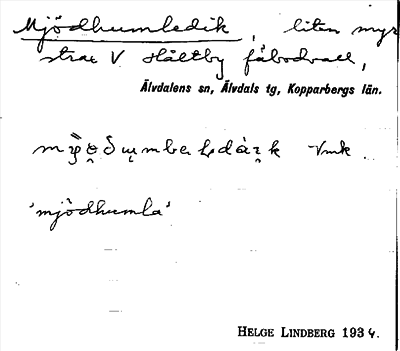 Mjödhumledik, liten myr
strax V Håltby fäbodvall,
Älvdalens sn, Älvdals tg, Kopparbergs län.
'mjödhumla'
HELGE LINDBERG 1934.